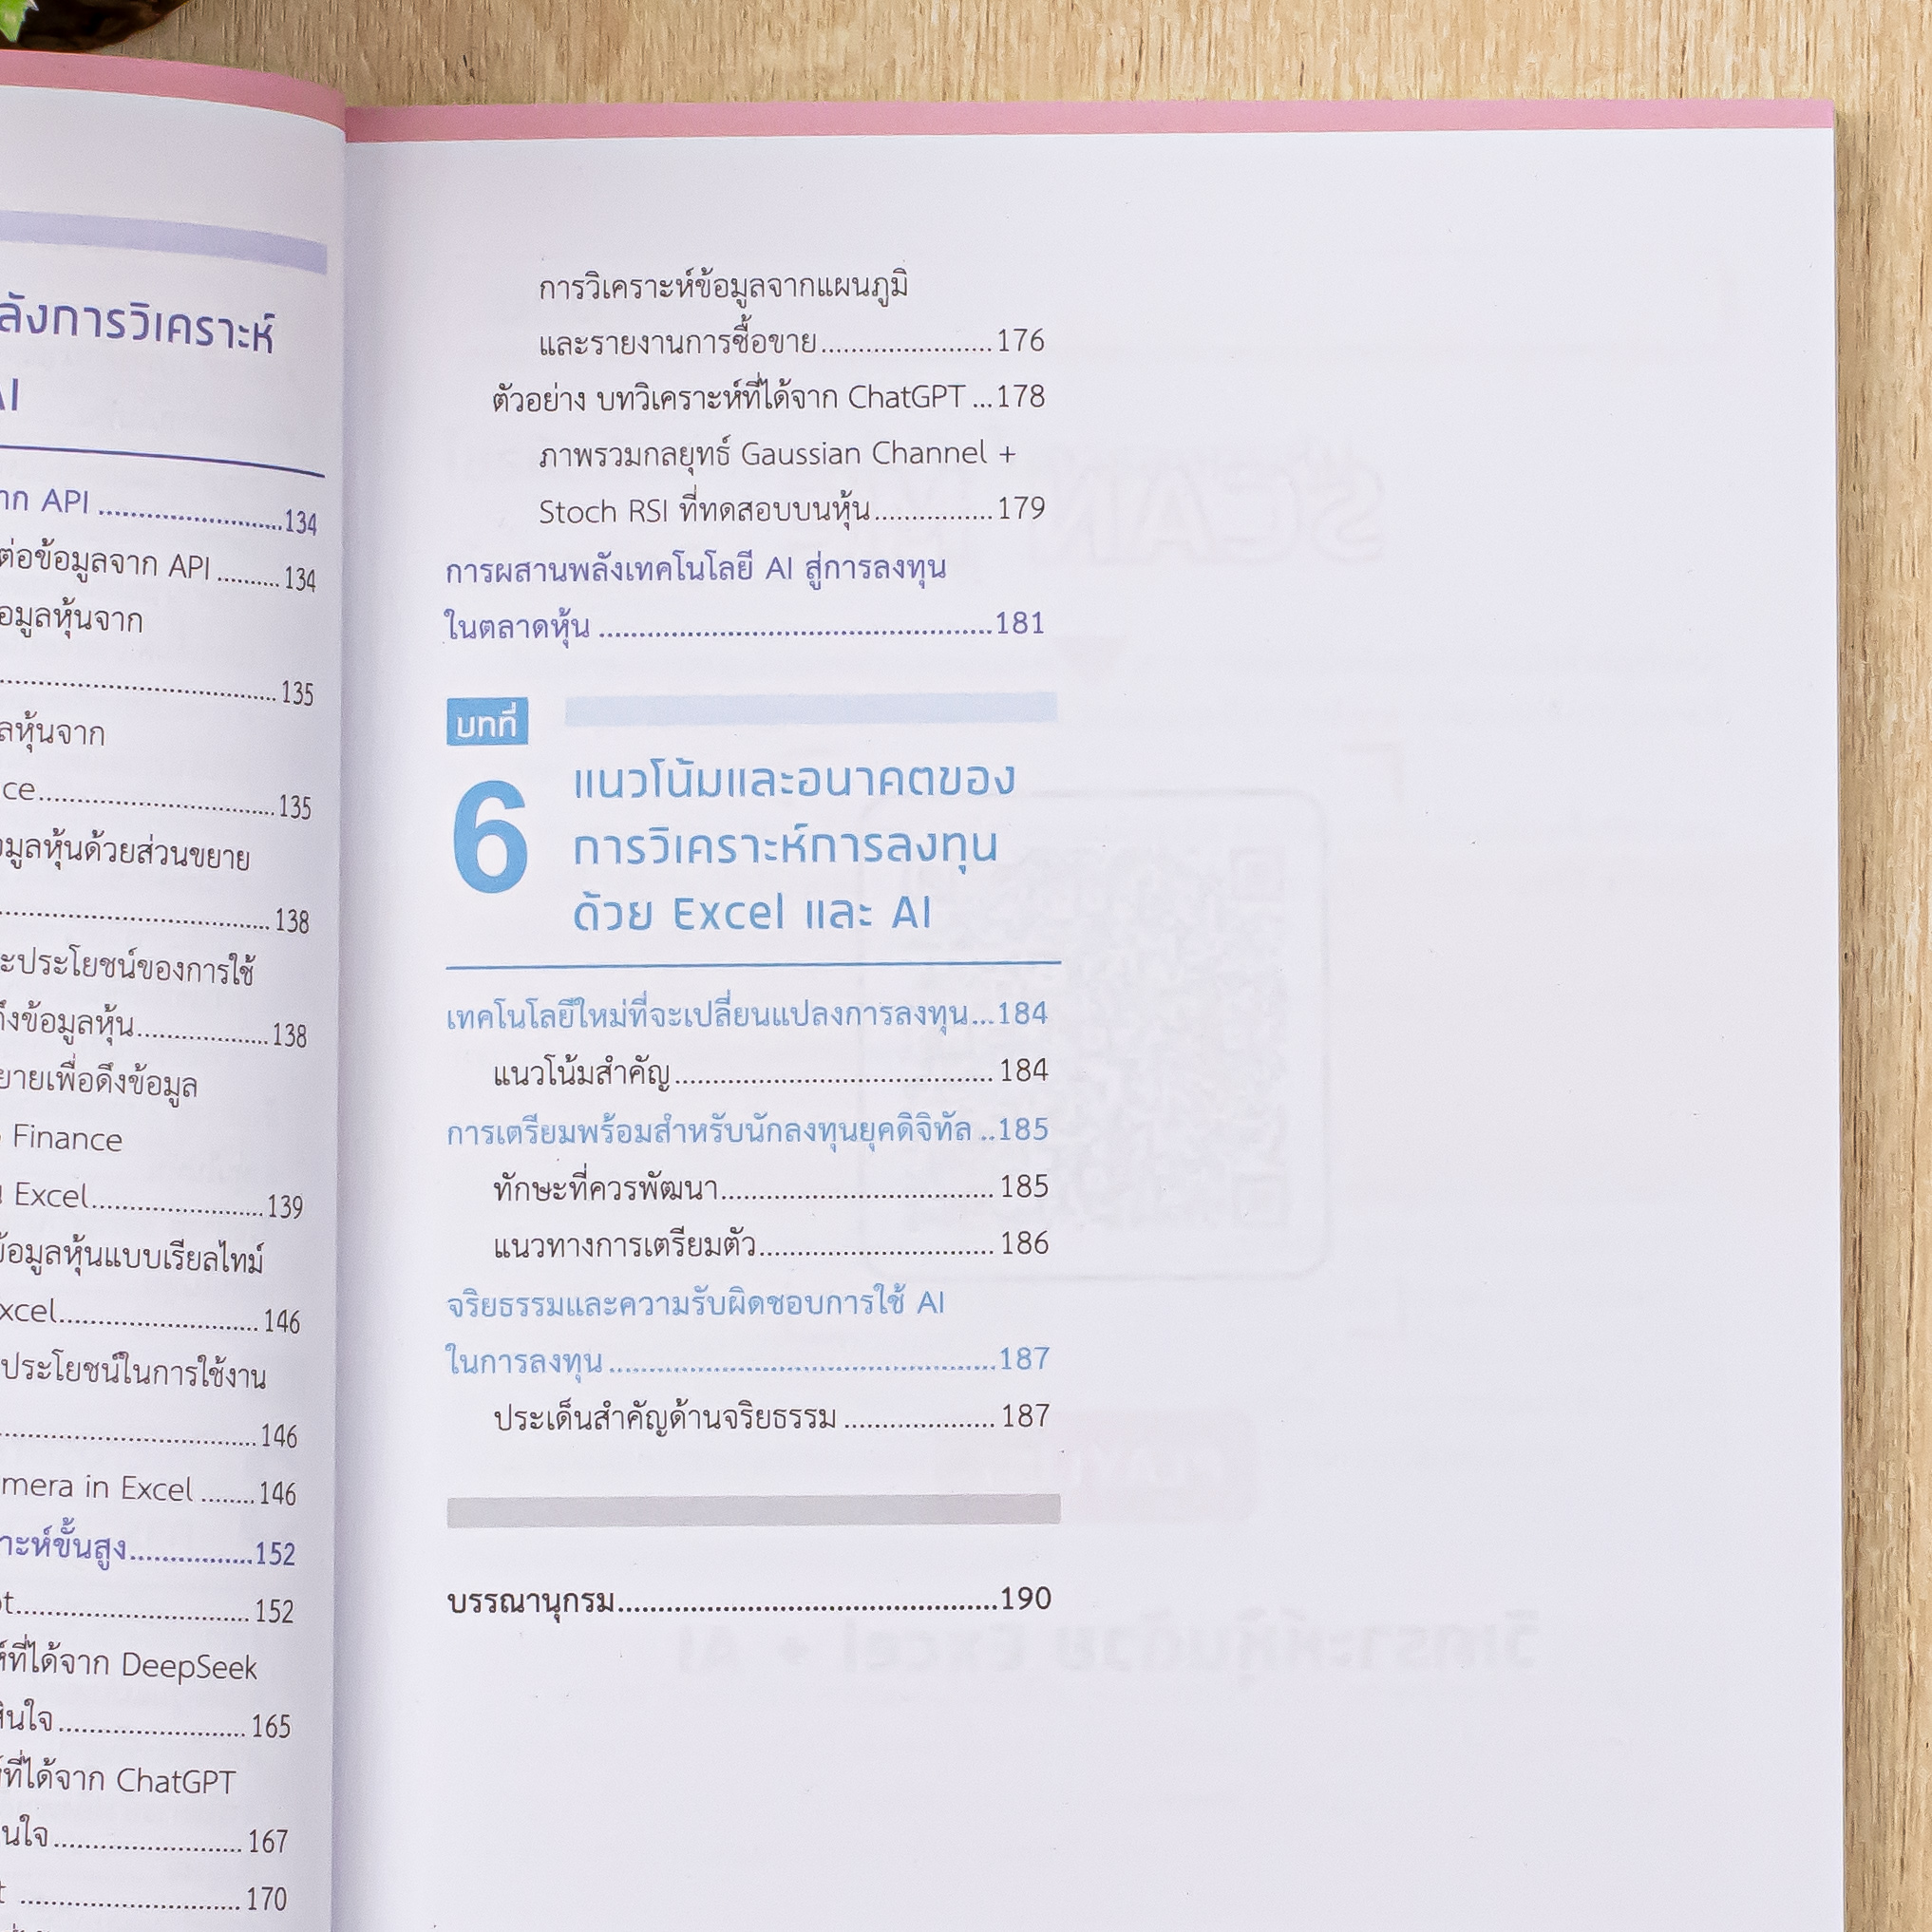 ลังการวิเคราะห์
AI
API ........................134
ต่อข้อมูลจาก API ..........134
ข้อมูลหุ้นจาก
....................................135
ลหุ้นจาก
ce...............................135
ข้อมูลหุ้นด้วยส่วนขยาย
....................................138
ประโยชน์ของการใช้
ข้อมูลหุ้น..................138
ขยายเพื่อดึงข้อมูล
Finance
Excel.......................139
ข้อมูลหุ้นแบบเรียลไทม์
xcel..........................146
ประโยชน์ในการใช้งาน
..................................146
mera in Excel ........146
ราะห์ขั้นสูง................152
t...............................152
ที่ได้จาก DeepSeek
สินใจ.........................165
ที่ได้จาก ChatGPT
นใจ.........................167
t .............................170
การวิเคราะห์ข้อมูลจากแผนภูมิ
และรายงานการซื้อขาย.......................176
ตัวอย่าง บทวิเคราะห์ที่ได้จาก ChatGPT ...178
ภาพรวมกลยุทธ์ Gaussian Channel +
Stoch RSI ที่ทดสอบบนหุ้น................179
การผสานพลังเทคโนโลยี AI สู่การลงทุน
ในตลาดหุ้น .................................................181
บทที่
6
แนวโน้มและอนาคตของ
การวิเคราะห์การลงทุน
ด้วย Excel และ AI
เทคโนโลยีใหม่ที่จะเปลี่ยนแปลงการลงทุน...184
แนวโน้มสำคัญ.......................................... 184
การเตรียมพร้อมสำหรับนักลงทุนยุคดิจิทัล ..185
ทักษะที่ควรพัฒนา.................................... 185
แนวทางการเตรียมตัว............................... 186
จริยธรรมและความรับผิดชอบการใช้ AI
ในการลงทุน ................................................187
ประเด็นสำคัญด้านจริยธรรม .................... 187
บรรณานุกรม...............................................190